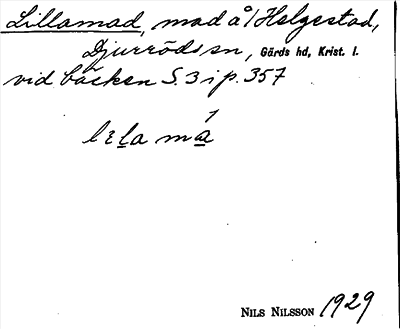 Lillamad, mad å/Helgestad,
Djurröds sn, Gärds hd, Krist. l.
vid bäcken S. 3 i p. 357
lela má
NILS NILSSON 1929